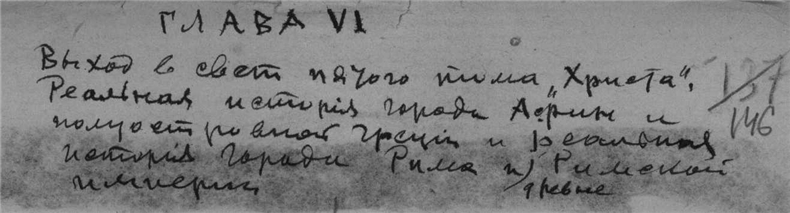 ГЛАВА VI
Выход в свет пятого тома „Христа".
Реальная исторія города Афин и
полуостровной Греціи и реальная
исторія города Рима и Римской
империи древне
137
146